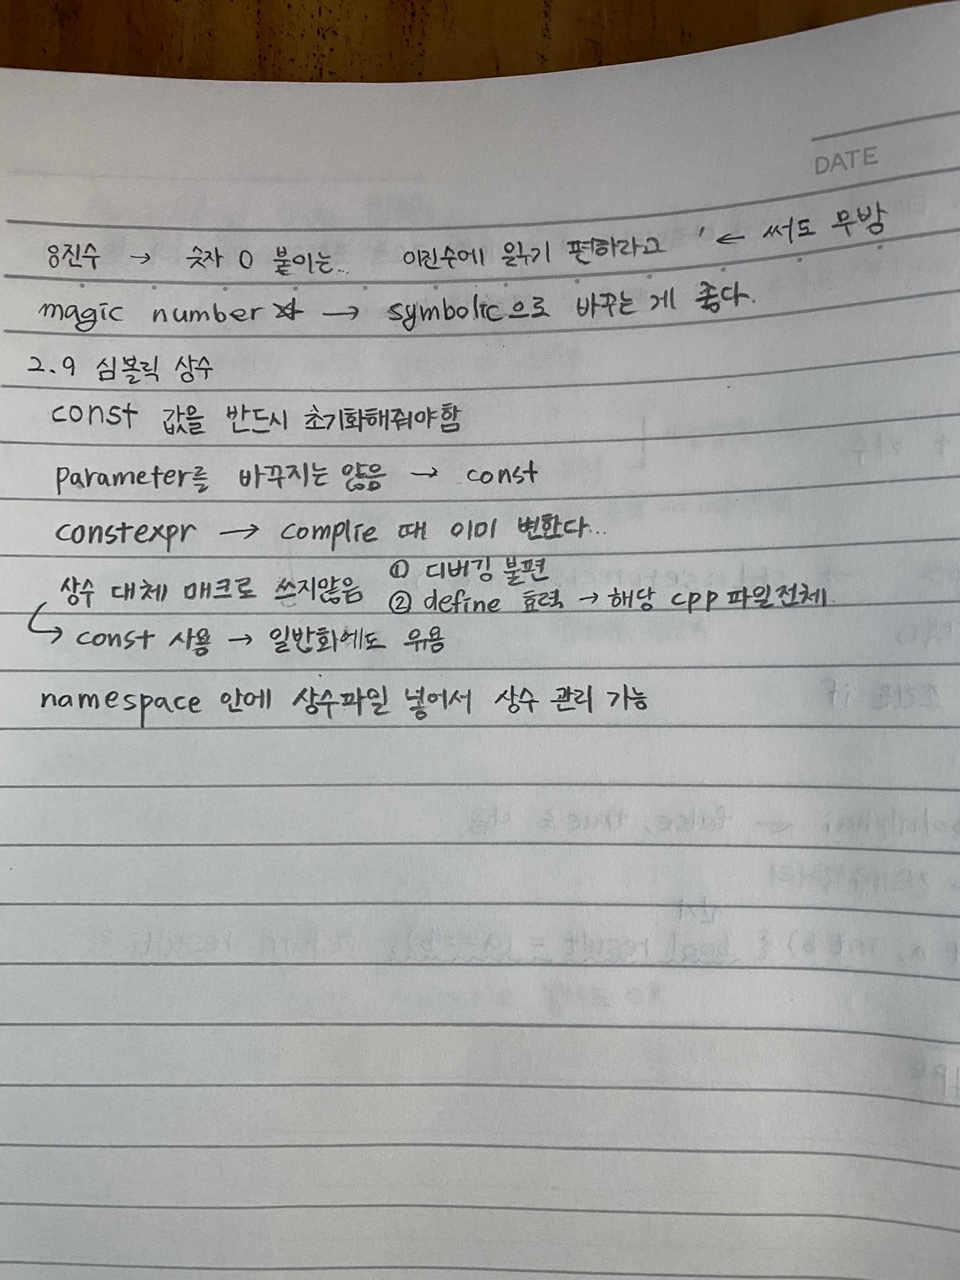 DATE
8진수 → 숫자 0 붙이는... 이진수에 읽기 편하라고 ' ← 써도 무방
magic number → symbolic으로 바꾸는 게 좋다.
2.9 심볼릭 상수
const 값을 반드시 초기화해줘야함
parameter를 바꾸지는 않음 → const
constexpr → complie 때 이미 변환다...
상수 대체 매크로 쓰지않음 ① 디버깅 불편
② define 효력 → 해당 cpp 파일전체.
↳ const 사용 → 일반화에도 유용
namespace 안에 상수파일 넣어서 상수 관리 가능